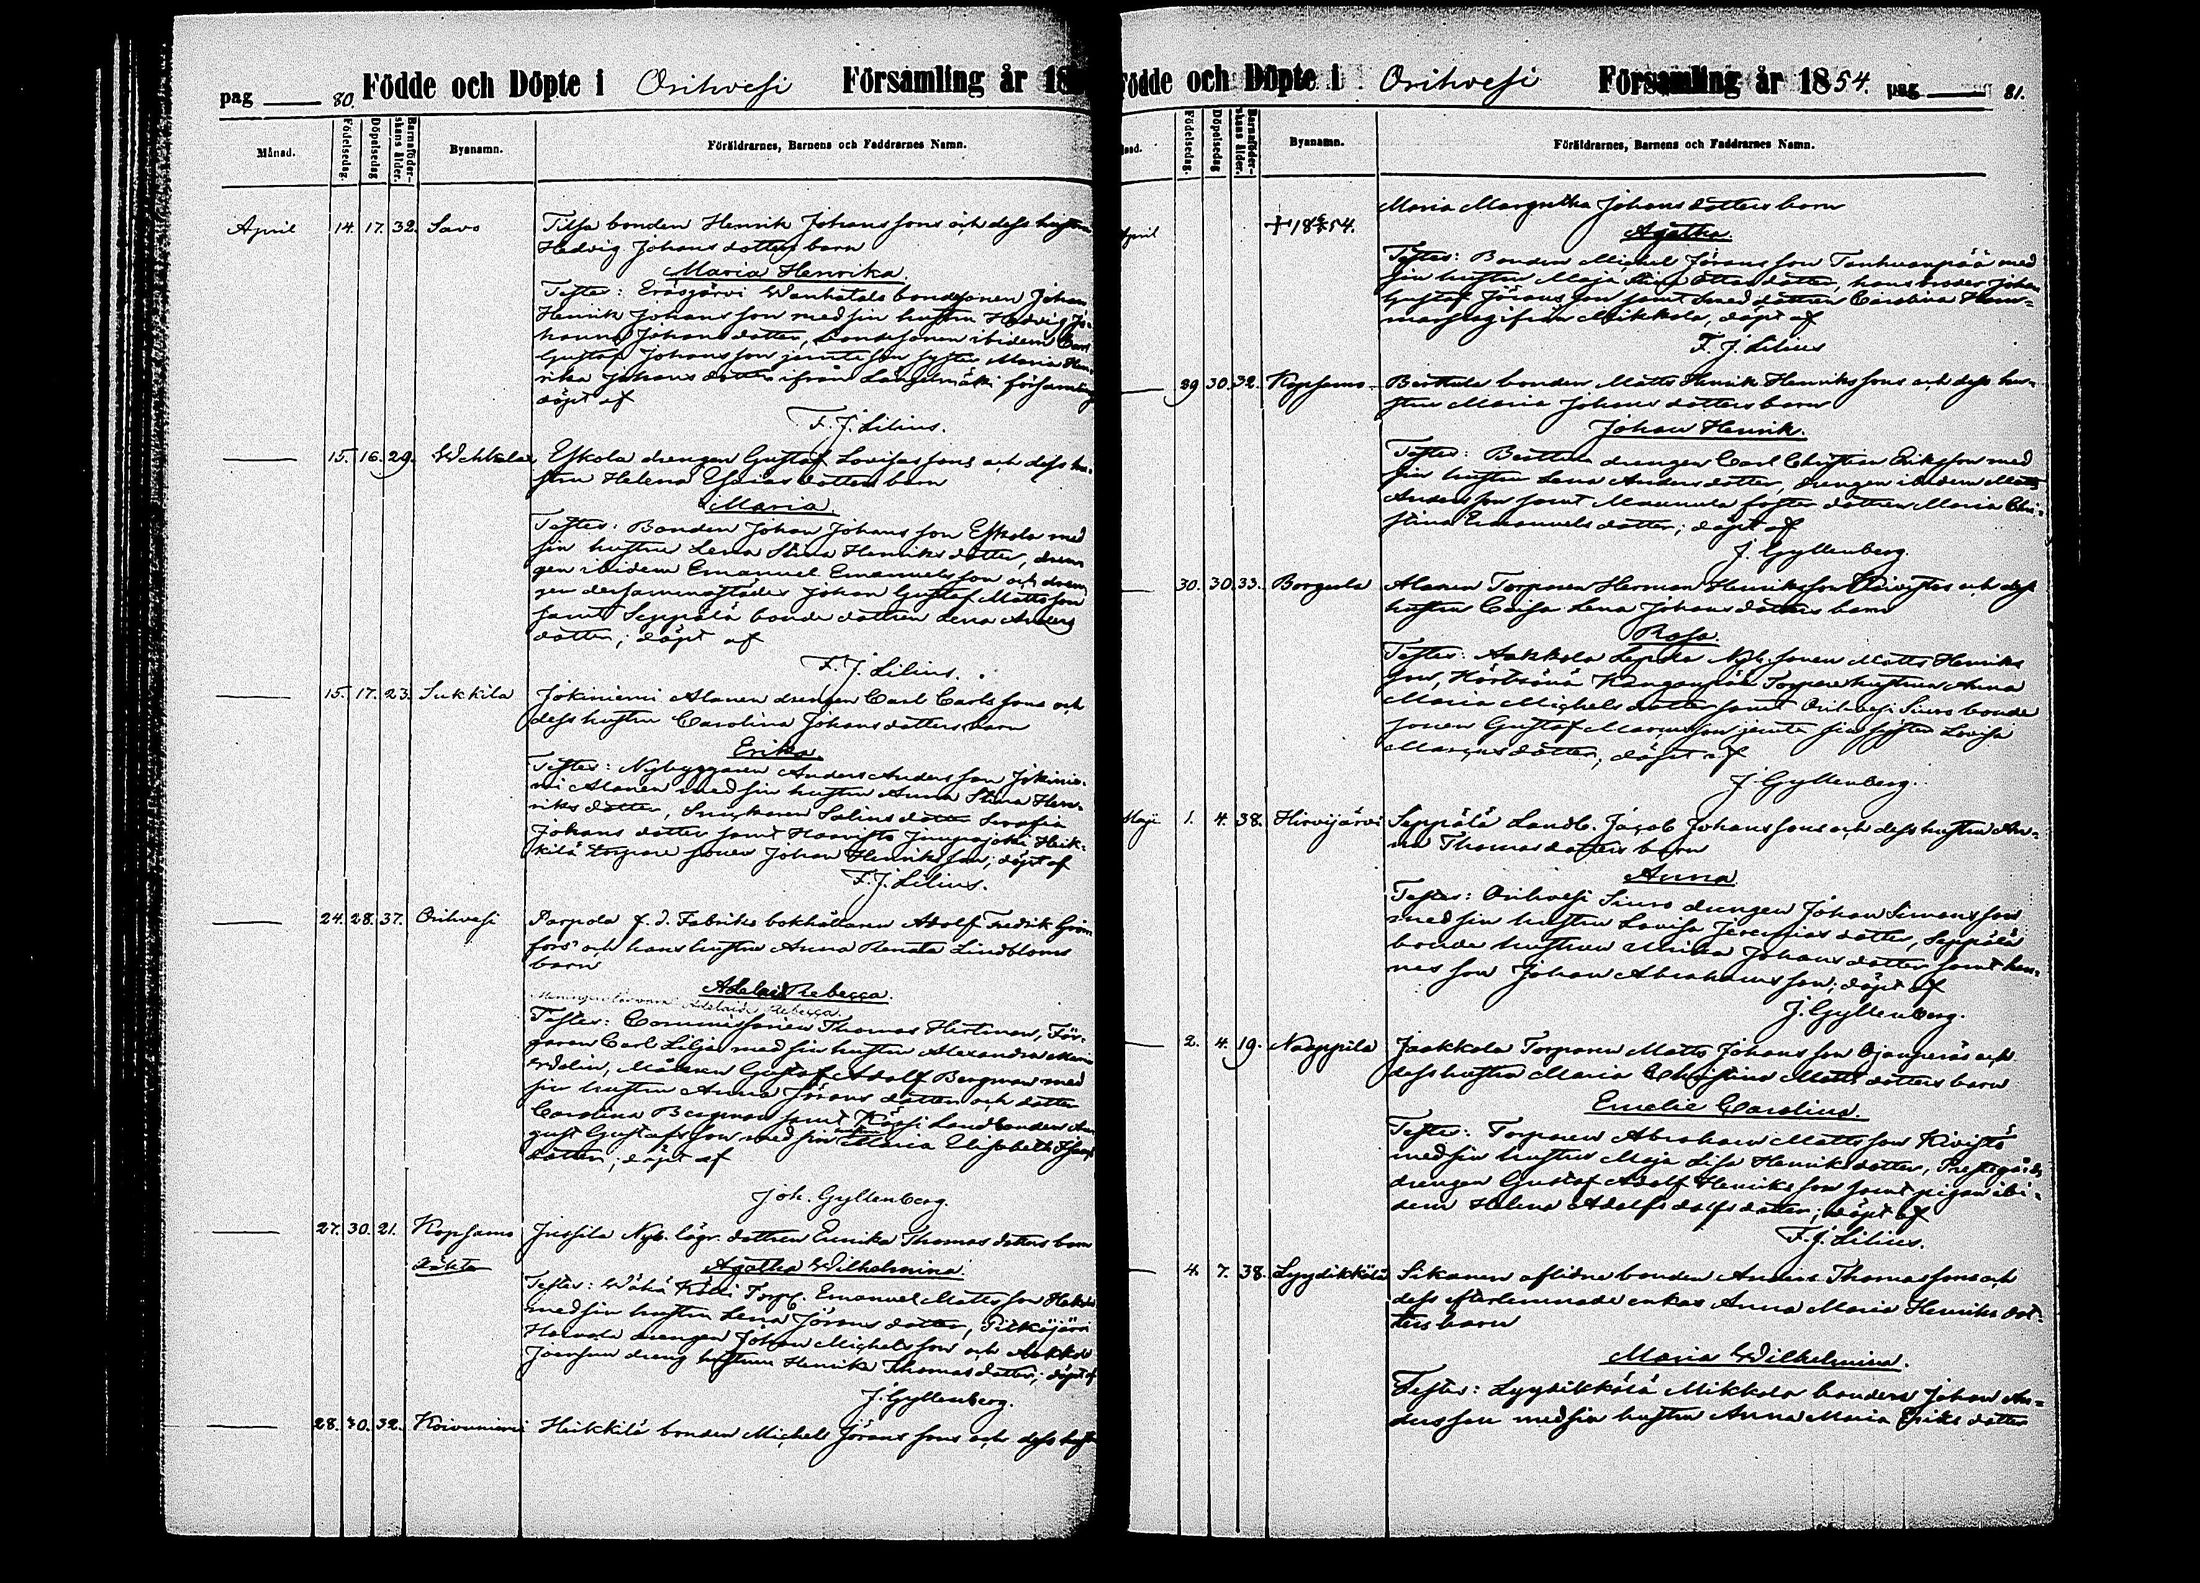 pag 80. Födde och Döpte i Orihvesi Församling år 18
Månad. Födelsedag. Döpelsedag Barnaföderskans ålder. Bysnamn. Föräldrarnes, Barnens och Faddrarnes Namn.
April 14. 17. 32. Savo Tilsa bonden Henrik Johanssons och dess hustru
Hedvig Johansdotters barn
Maria Henrika.
Testes: Eräsjärvi Wanhatalo bondsonen Johan
Henrik Johansson med sin hustru Hedvig Jo-
hanna Johansdotter, bondsonen ibidem Carl
Gustaf Johansson jemte sin syster Maria Hen-
rika Johansdotter ifrån Längelmäki församling
döpt af
F. J. Lilius.
15. 16. 29. Wehkala Eskola drengen Gustaf Lovisassons och dess hu-
stru Helena Esaiasdotters barn
Maria.
Testes: Bonden Johan Johansson Eskola med
sin hustru Lena Stina Henriksdotter, dren-
gen ibidem Emanuel Emanuelsson och dren-
gen dersammastädes Johan Gustaf Mattsson
samt Seppälä bonde dottren Lena Anders
dotter; döpt af
F. J. Lilius.
15. 17. 23. Sukkila Jokiniemi Alanen drengen Carl Carlssons och
dess hustru Carolina Johansdotters barn
Erika.
Testes: Nybyggaren Anders Andersson Jokinie-
mi Alanen med sin hustru Anna Stina Hen-
riksdotter, Snickaren Salins dotter Serafia
Johansdotter samt Haavisto Junnajoki Heik-
kilä torpare sonen Johan Henriksson; döpt af
F. J. Lilius.
24. 28. 37. Orihvesi Parpola f. d. Fabriks bokhållaren Adolf Fredrik Grön
fors' och hans hustru Anna Renata Lindbloms
barn
Adelaid Rebecca.
Adelaide Rebecca.
Testes: Commissarien Thomas Hirtman, Fär-
garen Carl Lilja med sin hustru Alexandra Maria
Wdelin, Målaren Gustaf Adolf Bergman med
sin hustru Anna Jöransdotter och dotter
Carolina Bergman samt Kössi Landbonden Au
gust Gustafsson med sin hustru Maria Elisabeth Isaks
dotter; döpt af
Joh. Gyllenberg.
27. 30. 21. Kopsamo Jussila Nyb. lägr. dottren Eunika Thomasdotters barn
oäkta Agatha Wilhelmina.
Testes: Wähä Kössi Torp. Emanuel Mattsson
med sin hustru Lena Jöransdotter, Pitkäjärvi
Hoivala drengen Johan Michelsson och Aakkola
Joensuu dreng hustrun Henrika Thomasdotter; döpt af
J. Gyllenberg.
28. 30. 32. Koivuniemi Heikkilä bonden Michel Jöranssons och dess hustru
Födde och Döpte i Orihvesi Församling år 1854. pag 81.
Födelsedag. Döpelsedag Barnaföderskans ålder. Bysnamn. Föräldrarnes, Barnens och Faddrarnes Namn.
Maria Margretha Johansdotters barn
April Agatha.
Testes: Bonden Michel Jöransson Tanhuanpää med
sin hustru Maja Stina Ottosdotter, hans broder Johan
Gustaf Jöransson samt Smed dottren Carolina Ham-
mar ifrån Mikkola, döpt af
F. J. Lilius
29 30. 32. Kopsamo Berttula bonden Matts Henrik Henrikssons och dess hu-
stru Maria Johansdotters barn
Johan Henrik.
Testes: Berttula drengen Carl Christian Eriksson med
sin hustru Lena Andersdotter, drengen ibidem Matts
Andersson samt Maunula foster dottren Maria Chri-
stina Emanuelsdotter; döpt af
J. Gyllenberg.
30. 30. 33. Bergula Alanen Torparen Herman Henriksson Koivistos och dess
hustru Caisa Lena Johansdotters barn
Rosa.
Testes: Aakkola Nyb. sonen Matts Henriks
son, Hörtsänä Kanganpää Torpare hustrun Anna
Maria Michelsdotter samt Orihvesi Siuro bonde
sonen Gustaf Marcusson jemte sin syster Lovisa
Marcusdotter, döpt af
J. Gyllenberg.
Maji 1. 4. 38. Hirvijärvi Seppälä Landb. Jacob Johanssons och dess hustru An-
na Thomasdotters barn
Anna
Testes: Orihvesi Siuro drengen Johan Simonsson
med sin hustru Lovisa Jeremiasdotter, Seppälä
bonde hustrun Ulrika Johansdotter samt hen-
nes son Johan Abrahamsson; döpt af
J. Gyllenberg.
2. 4. 19. Naappila Jaakkola Torparen Matts Johansson Ojanperäs och
dess hustru Maria Christina Mattsdotters barn
Emelie Carolina.
Testes: Torparen Abraham Mattsson Kivistö
med sin hustru Maja Lisa Henriksdotter, Prestgårds
drengen Gustaf Adolf Henriksson samt pigan ibi-
dem Helena Adolfsdotter; döpt af
F. J. Lilius.
4. 7. 38. Lyydikkälä Sikanen aflidne bonden Anders Thomassons och
dess efterlemnade enkas Anna Maria Henriks dot-
ters barn
Maria Wilhelmina.
Testes: Lyydikkälä Mikkola bonden Johan An-
dersson med sin hustru Anna Maria Eriksdotter